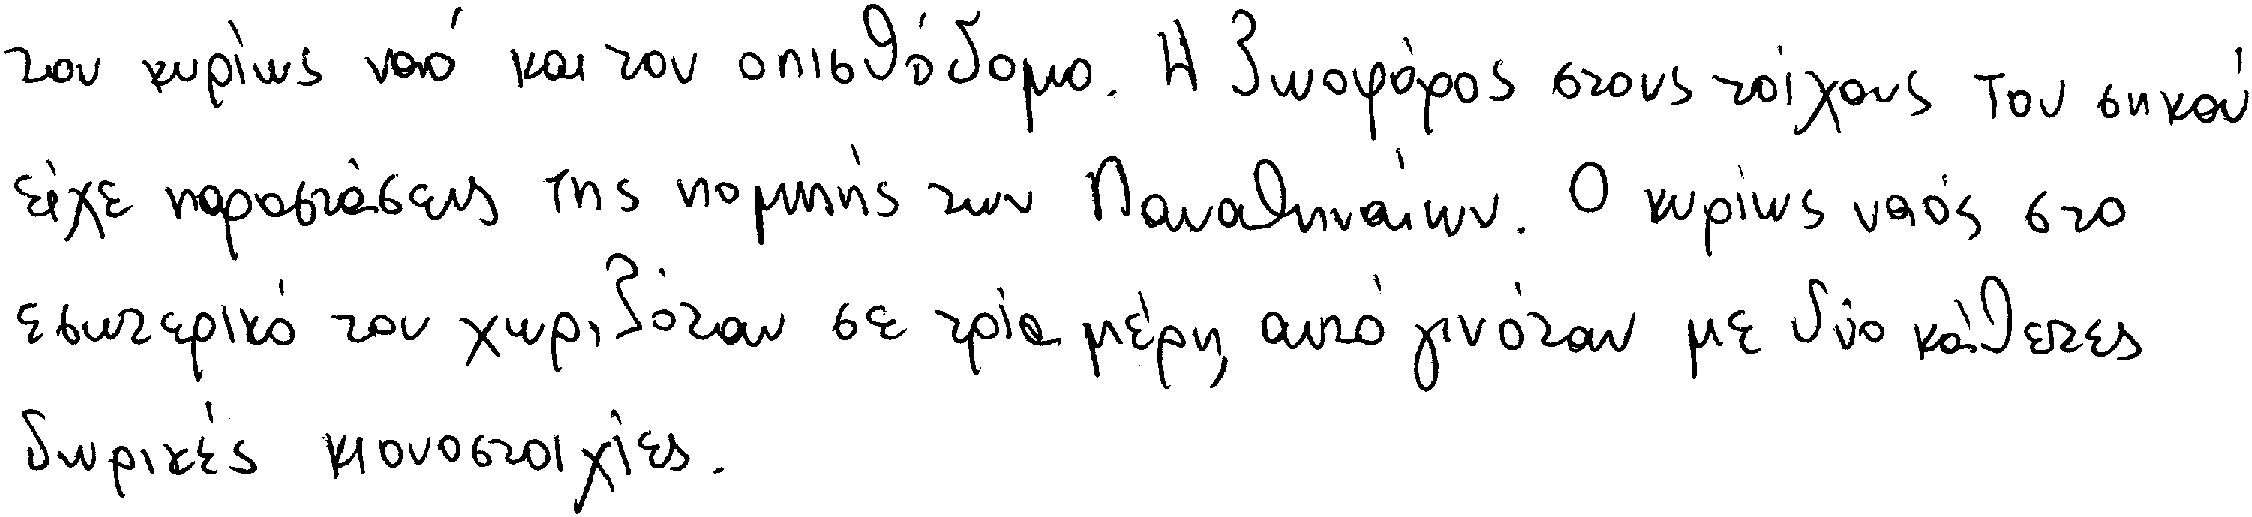 τον κυρίως ναό και τον οπισθόδομο. Η ζωοφόρος στους τοίχους του σηκού
είχε παραστάσεις της πομπής των Παναθηναίων. Ο κυρίως ναός στο
εσωτερικό του χωριζόταν σε τρία μέρη, αυτό γινόταν με δύο κάθετες
δωρικές κιονοστοιχίες.